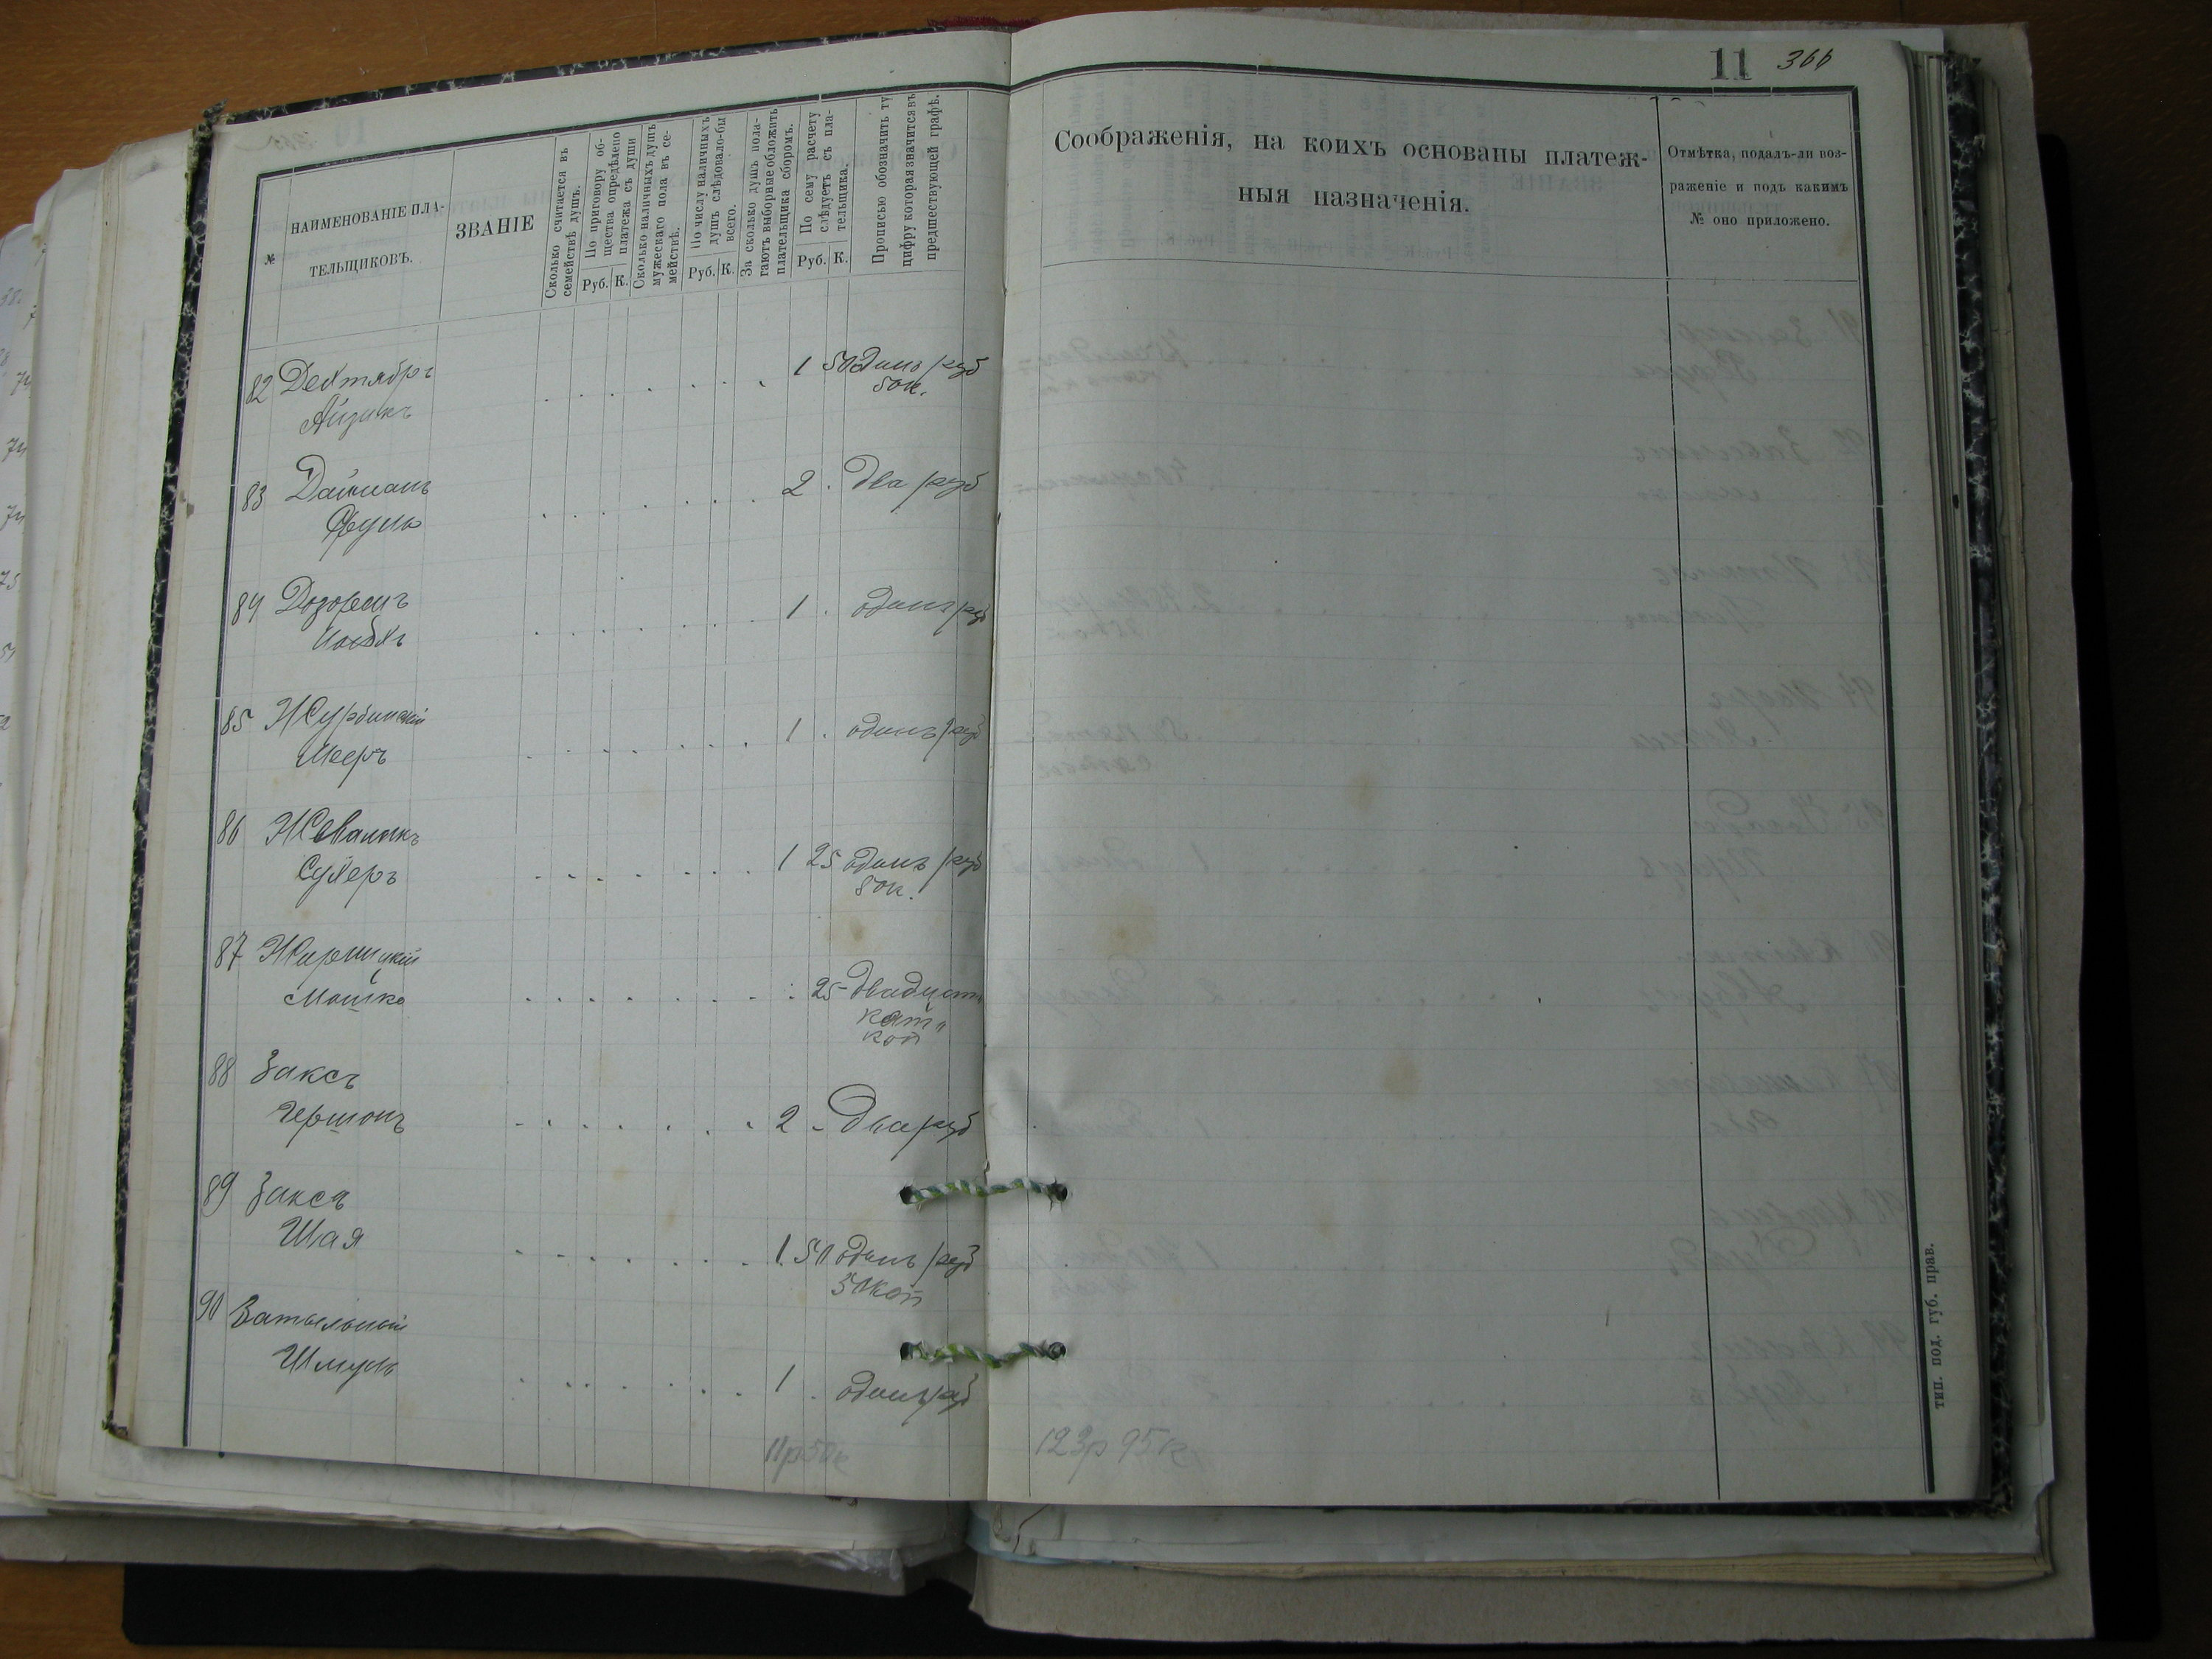 11 366
№
НАИМЕНОВАНІЕ ПЛА-
ТЕЛЬЩИКОВЪ.
ЗВАНІЕ
Сколько считается въ
семействѣ душъ.
По приговору об-
щества опредѣлено
платежа съ души
Руб. К.
Сколько наличныхъ душъ
мужескаго пола въ се-
мействѣ.
По числу наличныхъ
душъ слѣдовало-бы
всего.
Руб. К.
За сколько душъ пола-
гаютъ выборные обложить
плательщика сборомъ.
По сему расчету
слѣдуетъ съ пла-
тельщика.
Руб. К.
Прописью обозначить ту
цифру которая значится въ
предшествующей графѣ.
Соображенія, на коихъ основаны платеж-
ныя назначенія.
Отмѣтка, подалъ-ли воз-
раженіе и подъ какимъ
№ оно приложено.
82 Дехтяръ 1 50 Одинъ руб
Айзикъ 50к.
83 Дайчманъ 2 . Два руб
Сруль
84 1 . одинъ руб
85 Журбинскій 1 . одинъ руб
Мееръ
86 Жваликъ
Сухеръ 1 25 одинъ руб
50к.
87
Мошко 25 двадцать
пять
коп
88 Заксъ
Гершонъ 2 - Два руб
89 Заксъ
Шая 1 50 одинъ руб
50 коп
90 Затыльный
Шмуль 1 . одинъ руб
11р50к 123р 95к
тип. под. губ. прав.